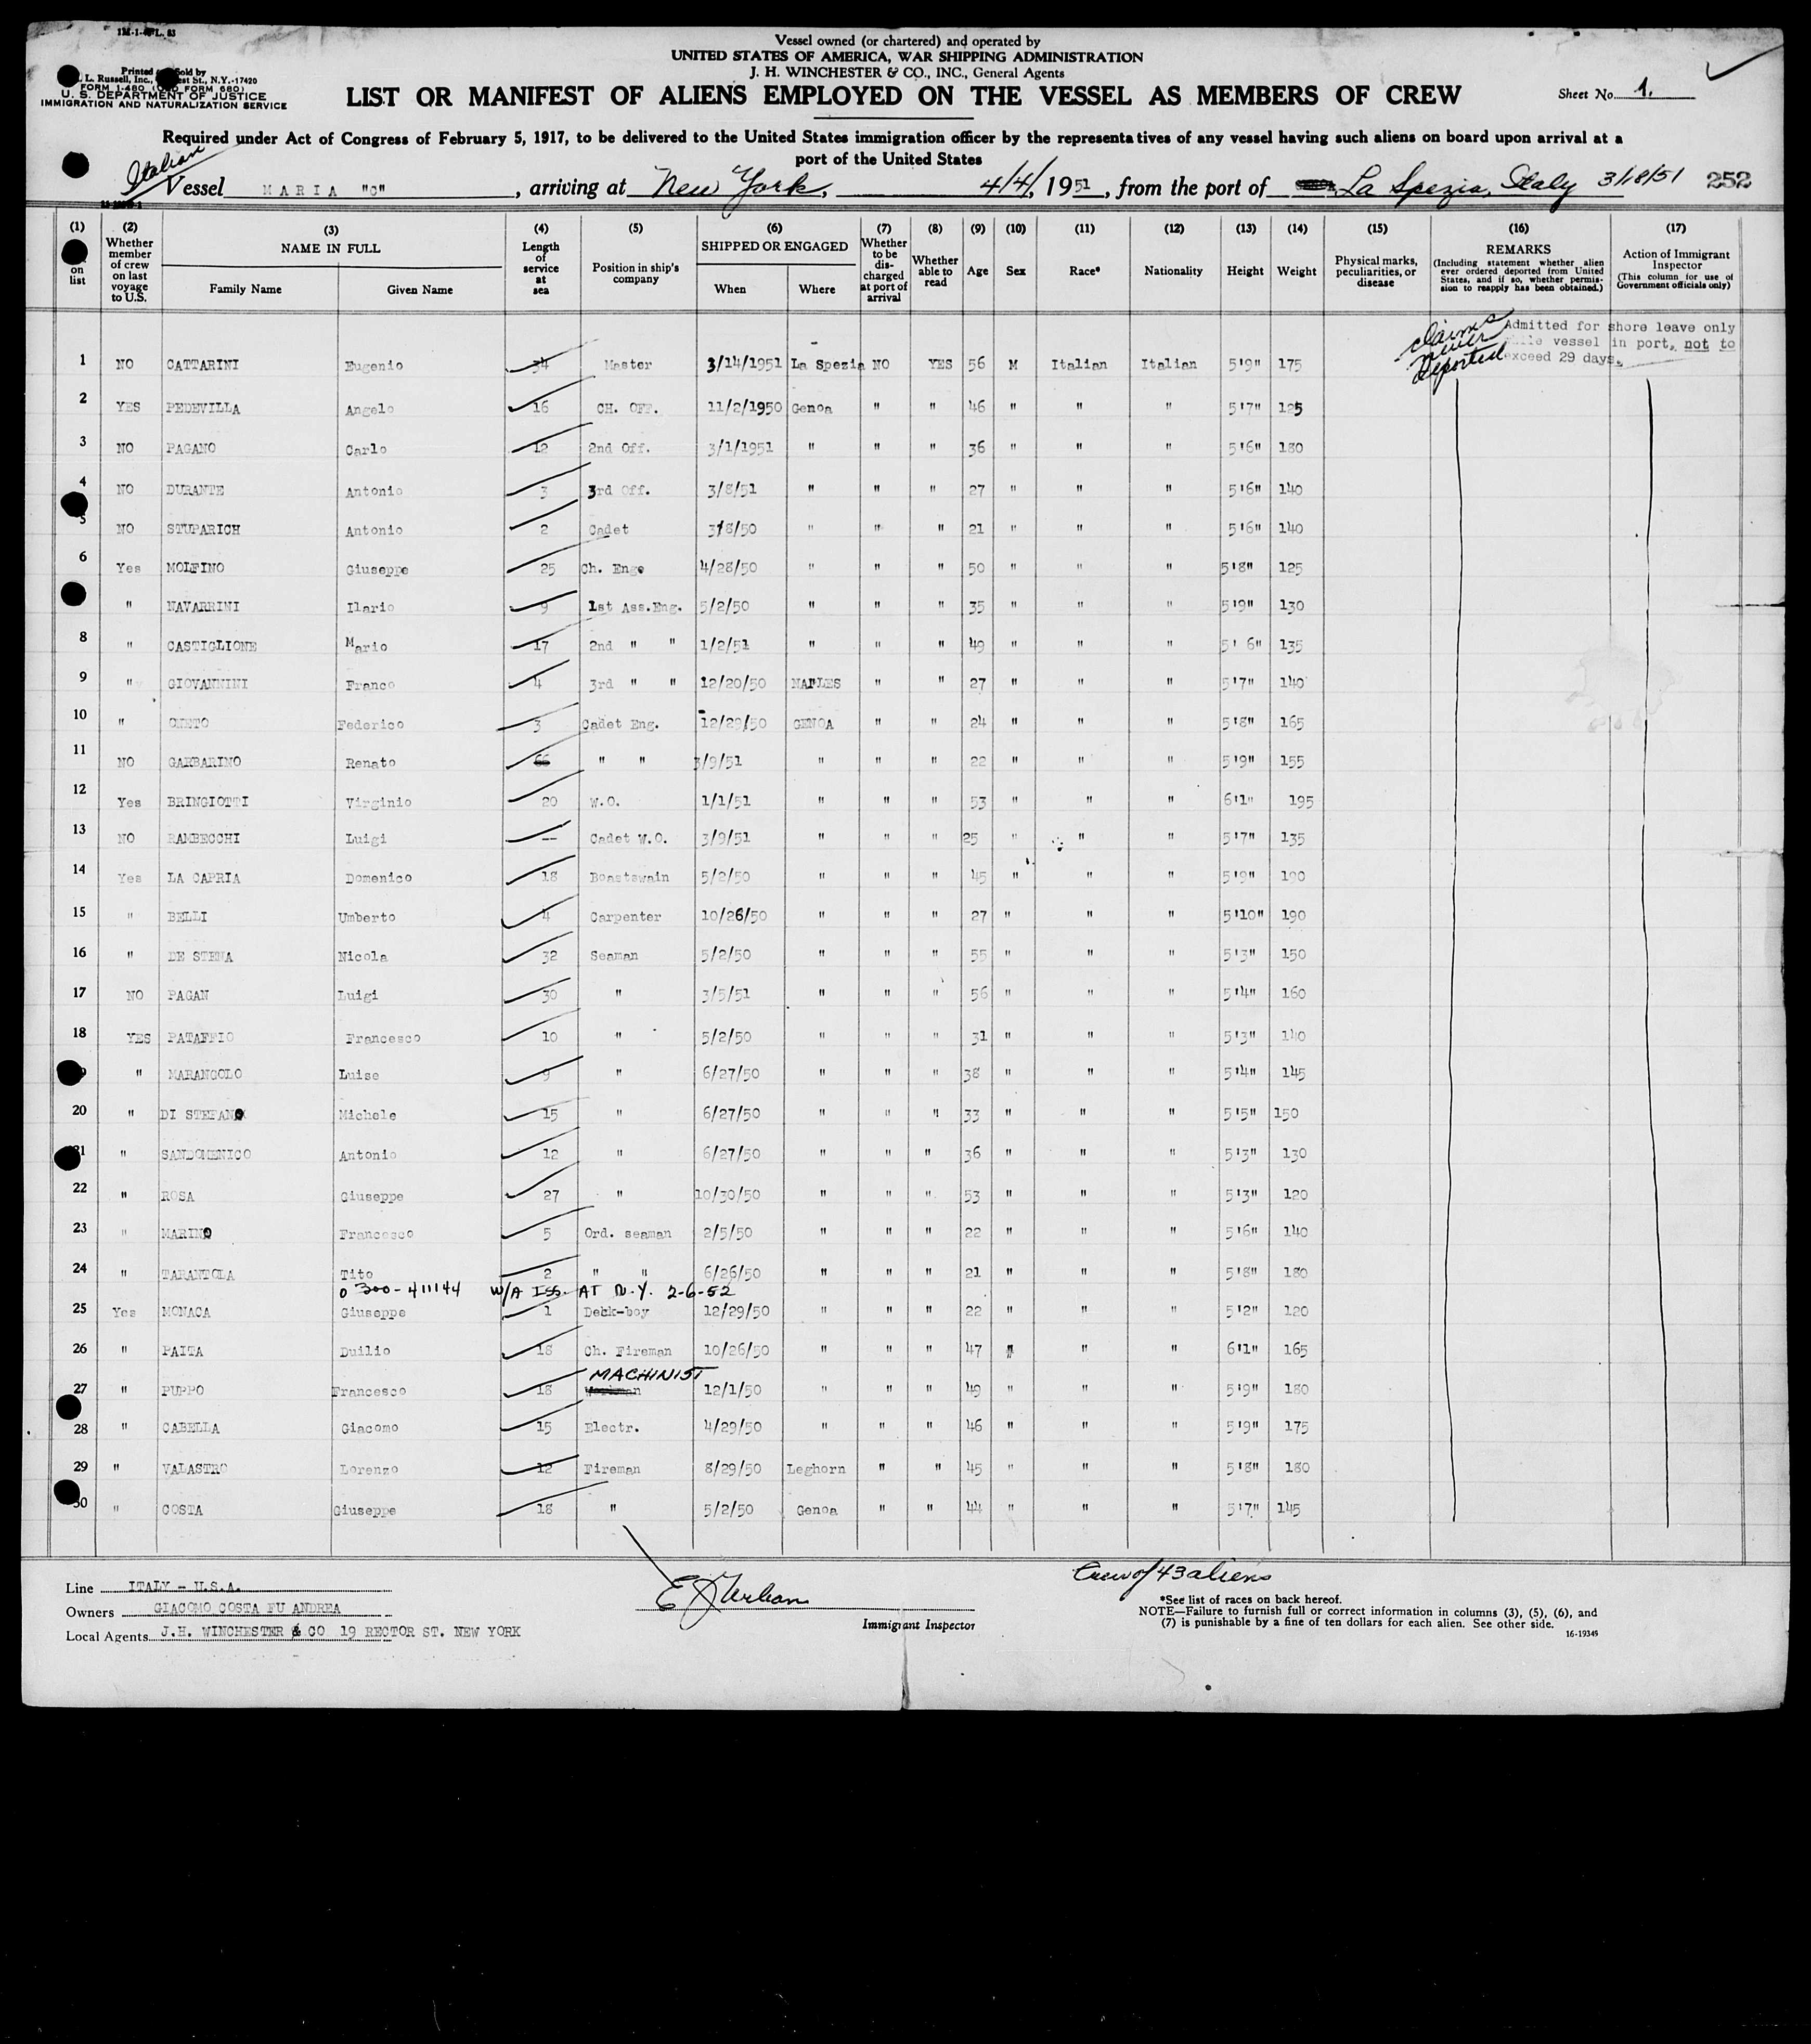 Vessel owned (or chartered) and operated by
UNITED STATES OF AMERICA, WAR SHIPPING ADMINISTRATION
J. H. WINCHESTER & CO., INC., General Agents
Printed Sold by
L. Russell, Inc., St., N.Y.-17420
FORM I-480 FORM 680)
U. S. DEPARTMENT OF JUSTICE
IMMIGRATION AND NATURALIZATION SERVICE
LIST OR MANIFEST OF ALIENS EMPLOYED ON THE VESSEL AS MEMBERS OF CREW
Sheet No. 1.
Required under Act of Congress of February 5, 1917, to be delivered to the United States immigration officer by the representatives of any vessel having such aliens on board upon arrival at a
port of the United States
Italian
Vessel MARIA "C", arriving at New York, 4/4/, 1951, from the port of La Spezia, Italy 3/18/51 252
(1) on list (2) Whether member of crew on last voyage to U.S. (3) NAME IN FULL Family Name Given Name (4) Length of service at sea (5) Position in ship's company (6) SHIPPED OR ENGAGED When Where (7) Whether to be discharged at port of arrival (8) Whether able to read (9) Age (10) Sex (11) Race* (12) Nationality (13) Height (14) Weight (15) Physical marks, peculiarities, or disease (16) REMARKS (Including statement whether alien ever ordered deported from United States, and if so, whether permission to reapply has been obtained.) (17) Action of Immigrant Inspector (This column for use of Government officials only)
claims never deported
Admitted for shore leave only
vessel in port, not to
exceed 29 days.
1 NO CATTARINI Eugenio 34 Master 3/14/1951 La Spezia NO YES 56 M Italian Italian 5'9" 175
2 YES PEDEVILLA Angelo 16 CH. OFF. 11/2/1950 Genoa " " 46 " " " 5'7" 125
3 NO PAGANO Carlo 12 2nd Off. 3/1/1951 " " " 36 " " " 5'6" 180
4 NO DURANTE Antonio 3 3rd Off. 3/8/51 " " " 27 " " " 5'6" 140
5 NO STUPARICH Antonio 2 Cadet 3/8/50 " " " 21 " " " 5'6" 140
6 Yes MOLFINO Giuseppe 25 Ch. Eng. 4/28/50 " " " 50 " " " 5'8" 125
" NAVARRINI Ilario 9 1st Ass.Eng. 5/2/50 " " " 35 " " " 5'9" 130
8 " CASTIGLIONE Mario 17 2nd " " 1/2/51 " " " 49 " " " 5' 6" 135
9 " GIOVANNINI Franco 4 3rd " " 12/20/50 NAPLES " " 27 " " " 5'7" 140
10 " Federico 3 Cadet Eng. 12/29/50 GENOA " " 24 " " " 5'8" 165
11 NO GARBARINO Renato " " 3/9/51 " " " 22 " " " 5'9" 155
12 Yes BRINGIOTTI Virginio 20 W.O. 1/1/51 " " " 53 " " " 6'1" 195
13 NO RAMBECCHI Luigi -- Cadet W.O. 3/9/51 " " " 25 " " " 5'7" 135
14 Yes LA CAPRIA Domenico 18 Boastswain 5/2/50 " " " 45 " " " 5'9" 190
15 " BELLI Umberto 4 Carpenter 10/26/50 " " " 27 " " " 5'10" 190
16 " DE STENA Nicola 32 Seaman 5/2/50 " " " 55 " " " 5'3" 150
17 NO PAGAN Luigi 30 " 3/5/51 " " " 56 " " " 5'4" 160
18 YES PATAFFIO Francesco 10 " 5/2/50 " " " 31 " " " 5'3" 140
" MARANGOLO Luise 9 " 6/27/50 " " " 38 " " " 5'4" 145
20 " DI STEFANO Michele 15 " 6/27/50 " " " 33 " " " 5'5" 150
21 " SANDOMENICO Antonio 12 " 6/27/50 " " " 36 " " " 5'3" 130
22 " ROSA Giuseppe 27 " 10/30/50 " " " 53 " " " 5'3" 120
23 " MARINO Francesco 5 Ord. seaman 2/5/50 " " " 22 " " " 5'6" 140
24 " TARANTOLA Tito 2 " " 6/26/50 " " " 21 " " " 5'8" 180
0300-411144 W/A Iss. AT N.Y. 2-6-52
25 Yes MONACA Giuseppe 1 Deck-boy 12/29/50 " " " 22 " " " 5'2" 120
26 " PAITA Duilio 18 Ch. Fireman 10/26/50 " " " 47 " " " 6'1" 165
MACHINIST
27 " PUPPO Francesco 18 12/1/50 " " " 49 " " " 5'9" 180
28 " CABELLA Giacomo 15 Electr. 4/29/50 " " " 46 " " " 5'9" 175
29 " VALASTRO Lorenzo 12 Fireman 8/29/50 Leghorn " " 45 " " " 5'8" 180
30 " COSTA Giuseppe 18 " 5/2/50 Genoa " " 44 " " " 5'7" 145
Crew of 43 aliens
Line ITALY - U.S.A.
Owners GIACOMO COSTA FU ANDREA
Local Agents J.H. WINCHESTER & CO 19 RECTOR ST. NEW YORK
Immigrant Inspector
*See list of races on back hereof.
NOTE—Failure to furnish full or correct information in columns (3), (5), (6), and
(7) is punishable by a fine of ten dollars for each alien. See other side.
16-19349